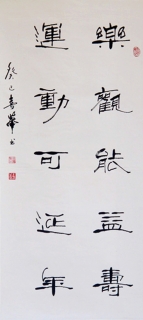 樂觀能益壽
運動可延年
癸巳 華書